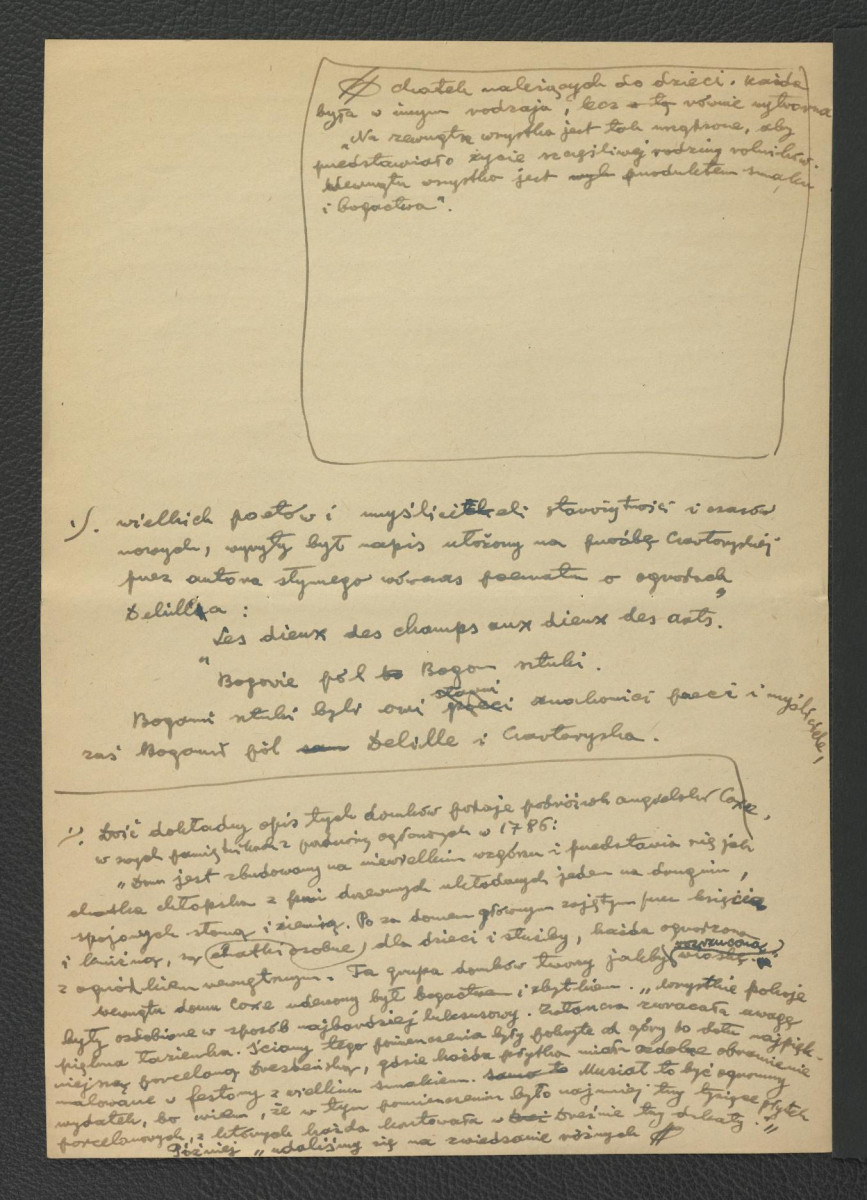 chatek należących do dzieci. Każda
była w innym rodzaju, lecz równie wytworna
„Na zewnątrz wszystko jest tak urządzone, aby
przedstawiało życie szczęśliwej rodziny rolników.
Wewnątrz wszystko jest produktem smaku
i bogactwa".
1). wielkich poetów i myślicieli starożytności i czasów
nowych, wyryty był napis ułożony na prośbę Czartoryskiej
przez autora słynnego wówczas poematu o ogrodach
Delille'a :
„Les dieux des champs aux dieux des arts."
„Bogowie pól Bogom sztuki.
Bogami sztuki byli owi znakomici poeci i myśliciele,
zaś Bogami pól Delille i Czartoryska.
1). Dość dokładny opis tych domków podaje podróżnik angielski Coxe,
w swych pamiętnikach z podróży ogłoszonych w 1786:
„Dom jest zbudowany na niewielkim wzgórzu i przedstawia się jak
chatka chłopska z pni drzewnych układanych jeden na drugim,
spojonych słomą i ziemią. Po za domem głównym zajętym przez księcia
i księżnę, są chatki osobne dla dzieci i służby, każda ogrodzona
z ogródkiem wewnętrznym. Ta grupa domków tworzy jakby rozrzuconą wioskę."
Wewnątrz domu Coxe uderzony był bogactwem i zbytkiem. „Wszystkie pokoje
były ozdobione w sposób najbardziej luksusowy. Zwłaszcza zwracała uwagę
piękna łazienka. Ściany tego pomieszczenia były pokryte od góry do dołu najpięk-
niejszą porcelaną Drezdeńską, gdzie każda płytka miała ozdobne obramienie
malowane w festony z wielkim smakiem. Musiał to być ogromny
wydatek, bo wiem, że w tym pomieszczeniu było najmniej trzy tysiące płytek
porcelanowych, z których każda kosztowała w Dreźnie trzy dukaty."
Później „udaliśmy się na zwiedzanie różnych